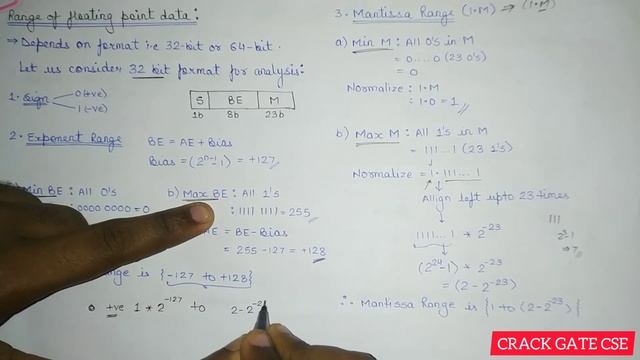 Range of floating point data:
⇒ Depends on format i.e 32-bit or 64-bit.
Let us consider 32 bit format for analysis:
1. Sign 0(+ve)
1(-ve)
S BE M
1b 8b 23b
2. Exponent Range BE = AE + Bias
Bias = (2ⁿ⁻¹-1) = +127
Min BE: All 0's
: 0000 0000 = 0
b) Max BE: All 1's
: 1111 1111 = 255
AE = BE - Bias
= 255 - 127 = +128
range is {-127 to +128}
+ve 1 * 2⁻¹²⁷ to 2-2⁻²
3. Mantissa Range (1.M) ⇒ (1.M)
a) Min M: All 0's in M
= 0....0 (23 0's)
= 0
Normalize: 1.M
: 1.0 = 1
b) Max M: All 1's in M
= 111...1 (23 1's)
Normalize = 1.111...1
Allign left upto 23 times
1111...1 * 2⁻²³
(2²⁴-1) * 2⁻²³
= (2-2⁻²³)
111
2³-1
⇒ 7
∴ Mantissa Range is {1 to (2-2⁻²³)}
CRACK GATE CSE